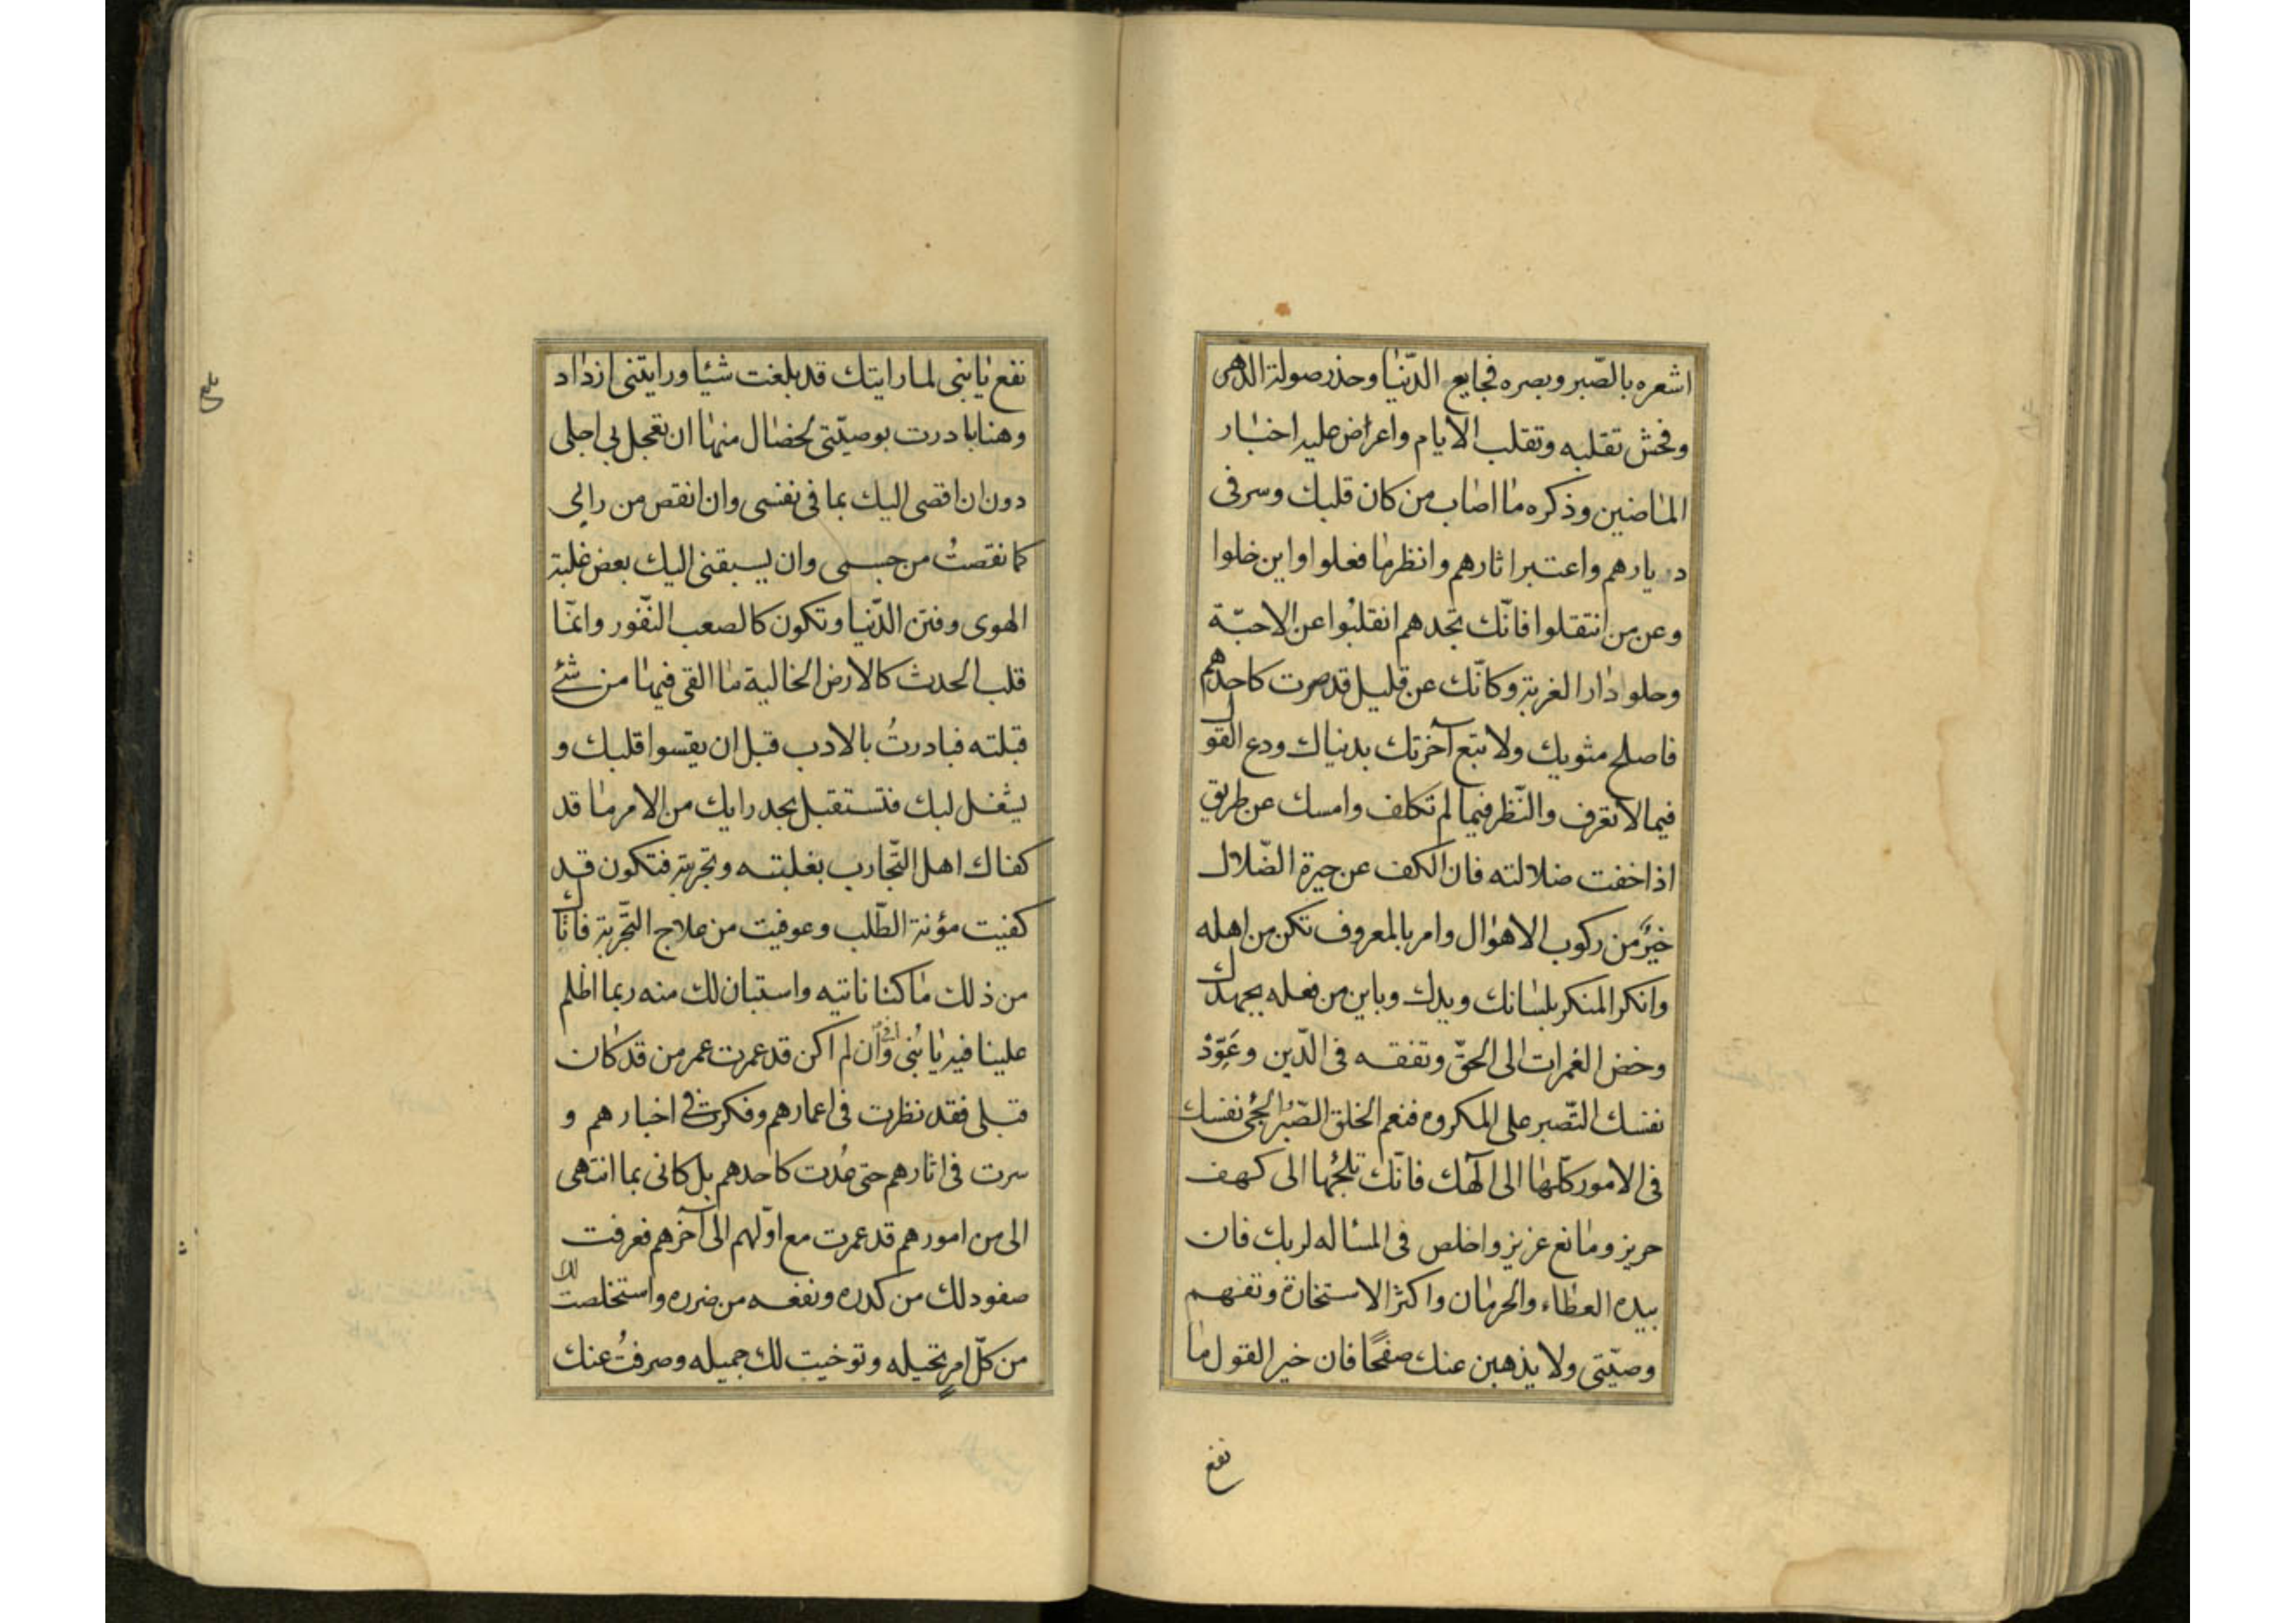 اشعره بالصّبر وبصره فجايع الدّنيا وحذر صولة الدّهر
وفحش تقلبه وتقلب الايام واعراض عليه اخبار
الماضين وذكره ما اصاب من كان قلبك وسر فى
ديارهم واعتبر اثارهم وانظر ما فعلوا واين خلوا
وعن من انتقلوا فانّك تجدهم انقلبُوا عن الاحبّة
وحلوا دار الغربة وكانّك عن قليل قد صرت كاحدهم
فاصلح مثويك ولا تبتع آخرتك بدنياك ودع القول
فيما لا تعرف والنّظر فيما لم تكلف وامسك عن طريق
اذا خفت ضلالته فان الكف عن حيرة الضّلال
خيرٌ من ركوب الاهوال وامر بالمعروف تكن من اهله
وانكر المنكر بلسانك ويدك وباين من فعله بجهدك
وخض الغمرات الى الحقّ وتفقه فى الدّين وعَوِّدْ
نفسك التّصبر على المكروه فنعم الخلق الصّبر الجئ نفسك
فى الامور كلّها الى الٓهك فانّك تلجئها الى كهف
حريز ومانع عزيز واخلص فى المسئاله لربك فان
بيده العطاء والحرمان واكثر الاستخارة وتفهم
وصيّتى ولا يذهبن عنك صفحًا فان خير القول ما
نفع
نفع يا بنى لما رايتك قد بلغت شيئا ورايتنى ازداد
وهنا بادرت بوصيّتى لخصال منها ان تعجل بى اجلى
دون ان اقصى اليك بما فى نفسى وان انقص من رايى
كما نقصتُ من جسمى وان يسبقنى اليك بعض غلبة
الهوى وفتن الدّنيا وتكون كالصعب النّفور وانّما
قلب الحدث كالارض الخالية ما القى فيها من شئ
قبلته فبادرتُ بالادب قبل ان يقسوا قلبك و
يشغل لبك فتستقبل بجد رايك من الامر ما قد
كفاك اهل التّجارب بغلبته وتجربة فتكون قد
كفيت مؤنة الطّلب وعوفيت من علاج التّجربة فاتاك
من ذلك ما كنا ناتيه واستبان لك منه ربما اظلم
علينا فيه يا بُنى وان لم اكن قد عمرت عمر من قد كان
قبلى فقد نظرت فى اعمارهم وفكرت فى اخبارهم و
سرت فى اثارهم حتى عُدت كاحدهم بل كانى بما انتهى
الى من امورهم قد عمرت مع اوّلهم الى آخرهم فعرفت
صفو ذلك من كدره ونفعه من ضرره واستخلصت لك
من كلّ امرٍ نخيله وتوخيت لك جميله وصرفتُ عنك
بلغ